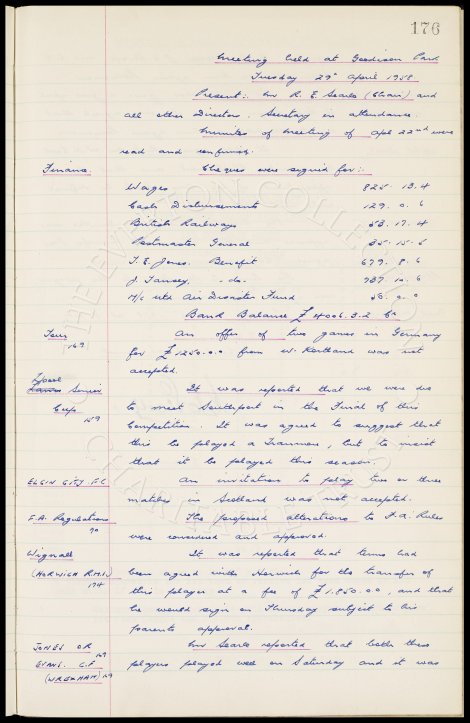 176
Meeting held at Goodison Park
Tuesday 29th April 1958
Present: Mr R. E. Searle (Chair) and
all other Directors. Secretary in attendance.
Minutes of Meeting of Apl 22nd were
read and confirmed.
Finance. Cheques were signed for:
Wages 825. 13. 4
Cash Disbursements 129. 0. 6
British Railways 53. 17. 4
Postmaster General 35. 15. 6
T. E. Jones. Benefit 679. 8. 6
J. Tansey. - do - 737. 10. 6
M/c Utd Air Disaster Fund 0. 0
Bank Balance £4006. 3. 2 Cr
Tour An offer of two games in Germany
169 for £1250.0.0 from W. was not
accepted.
L'pool
Lancs Senior It was reported that we were due
Cup to meet Southport in the Final of this
159 Competition. It was agreed to suggest that
this be played at Tranmere, but to insist
that it be played this season.
ELGIN CITY F.C An invitation to play two or three
matches in Scotland was not accepted.
F.A. Regulations The proposed alterations to F.A. Rules
70 were considered and approved.
Wignall It was reported that terms had
(HORWICH R.M.I.) been agreed with Horwich for the transfer of
174 this player at a fee of £1.850.00, and that
he would sign on Thursday subject to his
parents approval.
JONES OR 169 Mr Searle reported that both these
EVANS. C.F players played well on Saturday and it was
(WREXHAM) 169
THE EVERTON COLLECTION
CHARITABLE TRUST